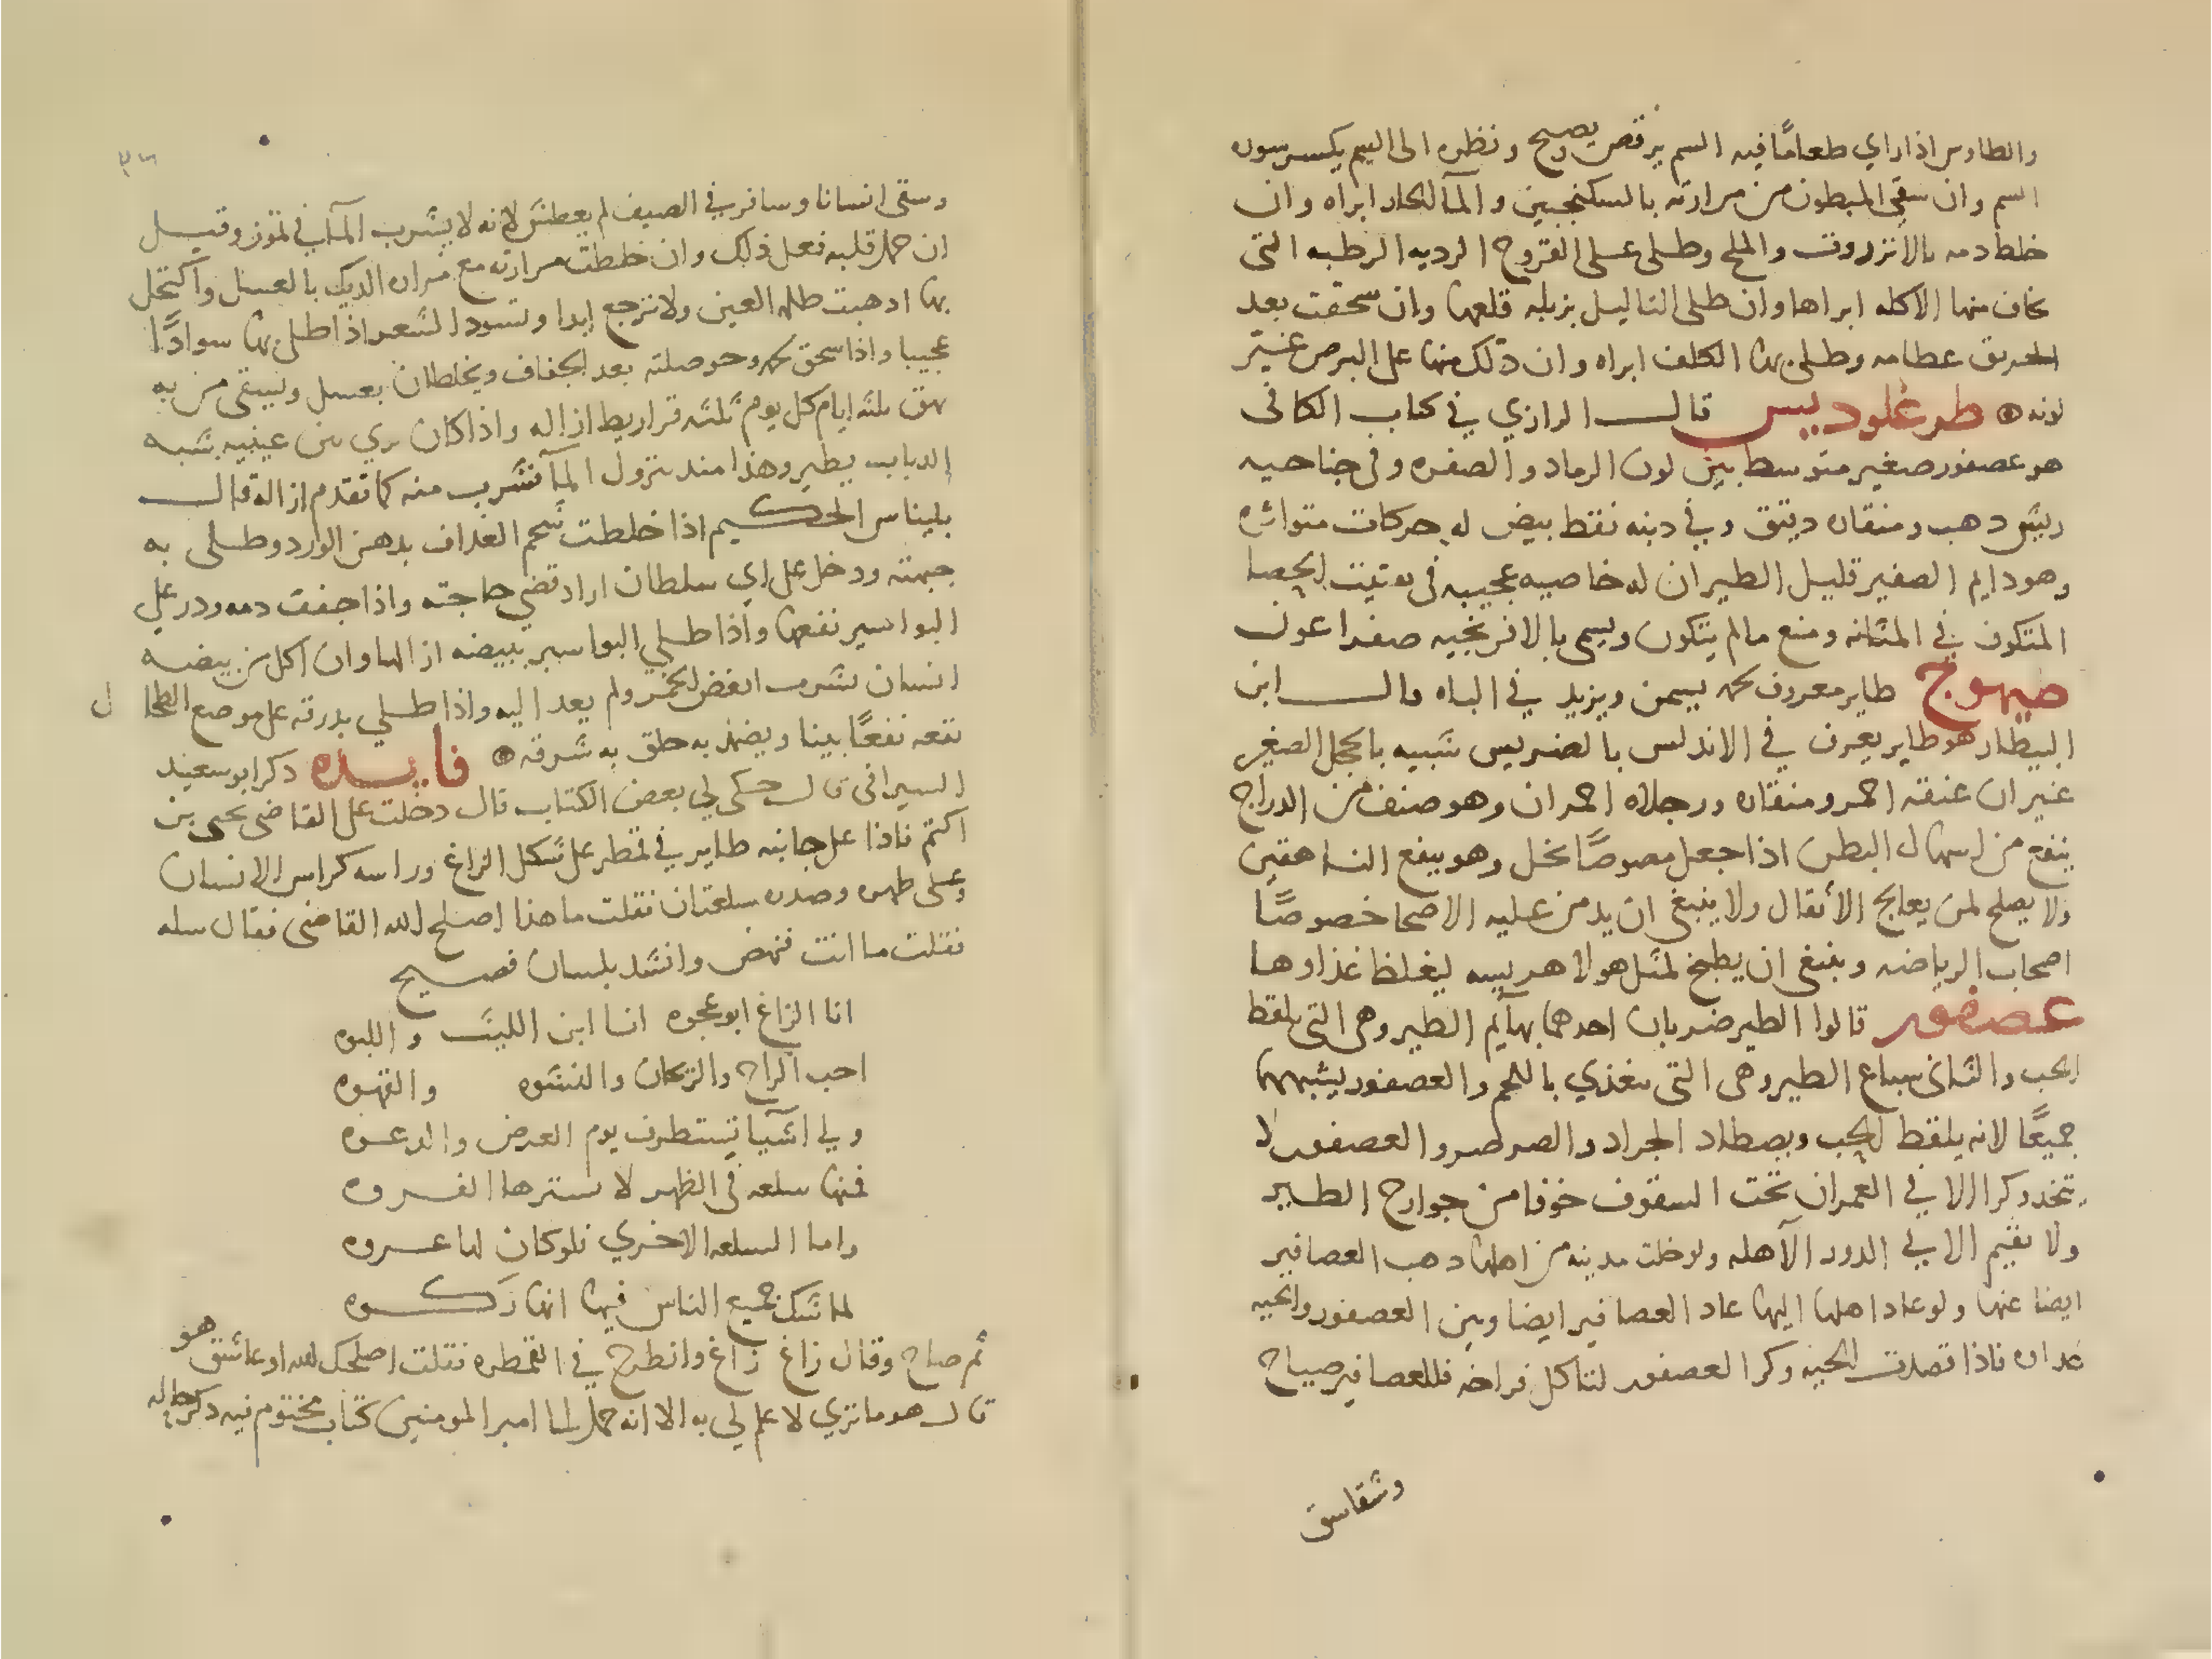 والطاوس اذا راي طعامًا فيه السم يرقص ويصيح ونظره الى السم يكسر سوره
السم وان سقي المبطون من مرارته بالسكنجبين والمآ الحار ابراه وان
خلط دمه بالانزروت والملح وطلى على القروح الرديه الرطبه التى
يخاف منها الاكله ابراها وان طلى الثاليل بزبله قلعها وان سحقت بعد
الحريق عظامه وطلى بها الكلف ابراه وان دلك منها على البرص غير
لونه طرغلوديس قال الرازي في كتاب الكافى
هو عصفور صغير متوسط بين لون الرماد والصفره وفى جناحيه
ريش دهب ومنقاره دقيق وفي دنبه نقط بيض له حركات متواتره
وهو دايم الصفير قليل الطيران له خاصيه عجيبه فى تفتيت الحصا
المتكون في المثانه ومنع مالم يتكون ويسمى بالافرنجيه صفراغون
صيهوج طاير معروف لحمه يسمن ويزيد في الباه قال ابن
البيطار هو طاير يعرف في الاندلس بالضريس شبيه بالحجل الصغير
غير ان عنقه احمر ومنقاره ورجلاه احمران وهو صنف من الدراج
ينفع من اسهال البطن اذا جعل مصوصًا بخل وهو ينفع الناهقين
ولا يصلح لمن يعالج الأثقال ولا ينبغي ان يدمن عليه الاصحا خصوصًا
اصحاب الرياضه وينبغى ان يطبخ لمثل هولا هريسه ليغلظ غذاوها
عصفور قالوا الطير ضربان احدهما بهآيم الطير وهى التى تلقط
الحب والثانى سباع الطير وهى التى تغذي باللحم والعصفور يشبههما
جميعًا لانه يلقط الحب ويصطاد الجراد والصرصر والعصفور لا
يتخد وكرا الا في العمران تحت السقوف خوفا من جوارح الطير
ولا تقيم الا في الدور الآهله ولو خلت مدينه من اهلها دهب العصافير
ايضا عنها ولو عاد اهلها اليها عاد العصافير ايضا وبين العصفور والحيه
عداوه فاذا قصدت الحيه وكر العصفور لتاكل فراخه فللعصافير صياح
وشقاشق
وسقى انسانا وسافر في الصيف لم يعطش لانه لا يشرب المآ في تموز وقيل
ان حمل قلبه فعل ذلك وان خلطت مرارته مع مراره الديك بالعسل واكتحل
بها ادهبت ظلمه العين ولا ترجع ابدا وتسود الشعر اذا طلى بها سوادًا
عجيبا واذا سحق لحمه وحوصلته بعد الجفاف ويخلطان بعسل ويسقى من به
بهق ثلثه ايام كل يوم ثلثه قراريط ازاله واذا كان يري بين عينيه شبه
الدباب يطير وهذا مند نزول المآ فشرب منه كما تقدم ازاله قال
بليناس الحكيم اذا خلطت شحم الغداف بدهن الورد وطلى به
جبهته ودخل على اي سلطان اراد قضي حاجته واذا جففت دمه ودر على
البواسير نفعها واذا طلي البواسير ببيضه ازالها وان اكل من بيضه
انسان يشرب ابغض الخمر ولم يعد اليه واذا طلي بدرقه على موضع الطحال
نفعه نفعًا بينا ويضمد به حلق به شرقه فايده دكر ابو سعيد
السيرافى قال حكى لي بعض الكتاب قال دخلت على القاضى يحيى بن
اكثم فاذا على جانبه طاير في قمطر على شكل الزاغ وراسه كراس الانسان
وعلى ظهره وصدره سلعتان فقلت ما هذا اصلح الله القاضى فقال سله
فقلت ما انت فنهض وانشد بلسان فصيح
انا الزاغ ابو عجوه انا ابن الليث واللبوه
احب الراح والريحان والنشوه والقهوه
ولي اشيآ تستطرف يوم العرض والدعوه
فمنها سلعه فى الظهر لا يسترها الفروه
واما السلعه الاخري فلو كان لها عروه
لما شك جميع الناس فيها انها ركوه
ثم صاح وقال زاغ زاغ وانطرح في القمطره فقلت اصلحك الله اوعاشق هو
قال هو ما تري لا علم لي به الا انه حمل الى امير المومنين كتاب مختوم فيه دكر حاله